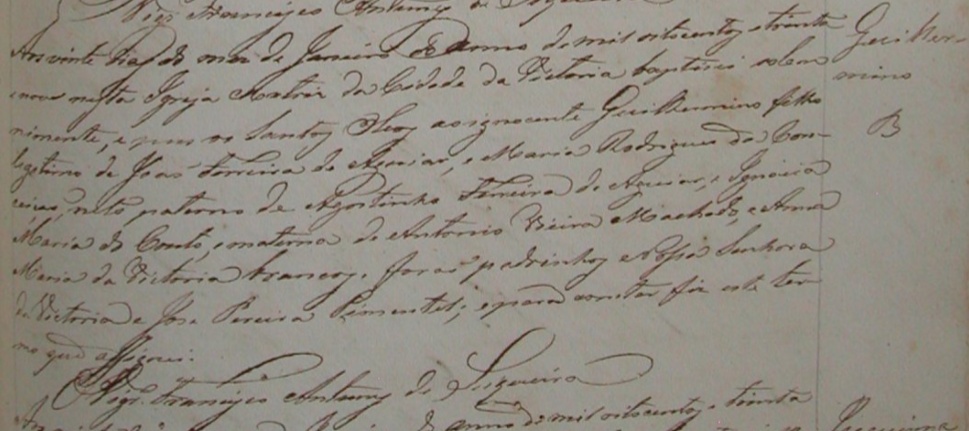 Vigr.º Francisco Antunes de Siqueira
Aos vinte dias do mes de Janeiro do anno de mil oitocentos e trinta
e nove nesta Igreja Matriz da Cidade da Victoria baptisei solem
nimente, e pus os Santos Oleos ao ignocente Guilhermino filho
legitimo de Joaõ Ferreira de Aguiar, e Maria Rodrigues da Con-
ceiçaõ, neto paterno de Agostinho Ferreira de Aguiar, e Ignacia
Maria do Couto, e materno de Antonio Vieira Machado, e Anna
Maria da Victoria brancos. foraõ padrinhos a Nossa Senhora
da Victoria e Jose Pereira Pimentel; e para constar fiz este ter
mo que assignei.
Vigr.º Francisco Antunes de Siqueira
anno de mil oitocentos e trinta
Guilher-
mino
B